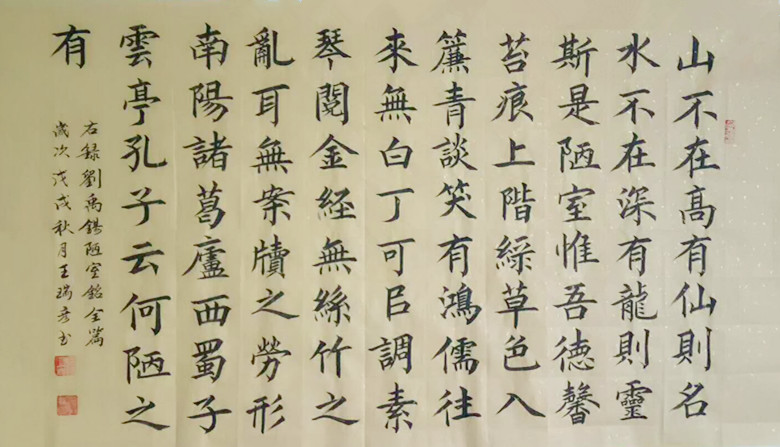 山不在高有仙則名
水不在深有龍則靈
斯是陋室惟吾德馨
苔痕上階綠草色入
簾青談笑有鴻儒往
來無白丁可㠯調素
琴閱金經無絲竹之
亂耳無案牘之勞形
南陽諸葛廬西蜀子
雲亭孔子云何陋之
有
右録劉禹錫陋室銘全篇
歲次戊戌秋月王瑞彦书